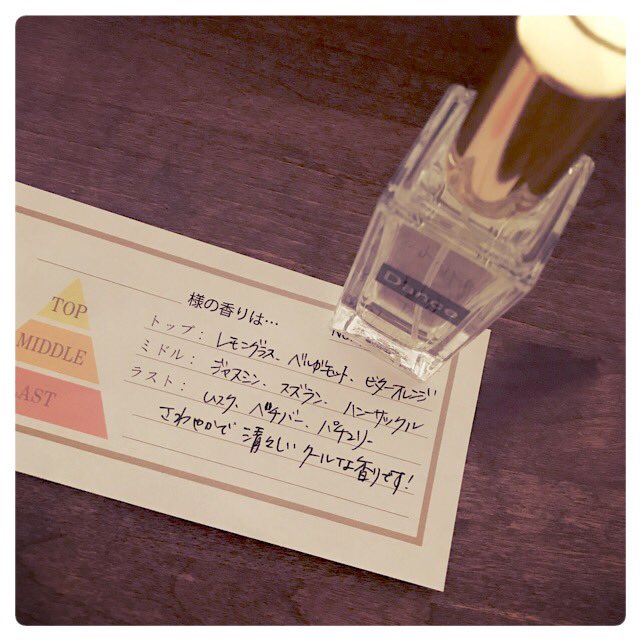 様の香りは…
No.
TOP
MIDDLE
LAST
トップ: レモングラス、ベルガモット、ビターオレンジ
ミドル: ジャスミン、スズラン、ハニーサックル
ラスト: ムスク、ベチバー、パチュリー
さわやかで清々しいクールな香りです!